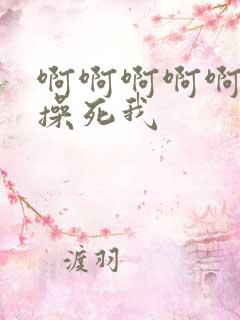 啊啊啊啊啊
操死我
渡羽